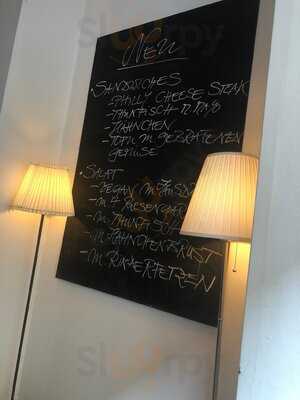 NEU
• SANDWICHES
- PHILLY CHEESE STEAK
- THUNFISCH
- HÄHNCHEN
- TOFU M. GEBRATENEM
GEMÜSE
• SALAT
- VEGAN M.
- M. 4 RIESENGAR
- M. THUNFISCH
- M. HÄHNCHENBRUST
- M. RINDERFETZEN